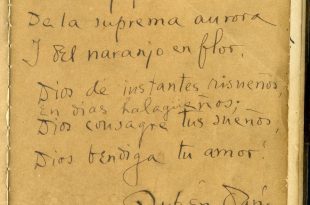 De la suprema aurora
Y del naranjo en flor.
Dios de instantes risueños,
En días halagüeños;
Dios consagre tus sueños,
Dios bendiga tu amor!
Rubén Darí